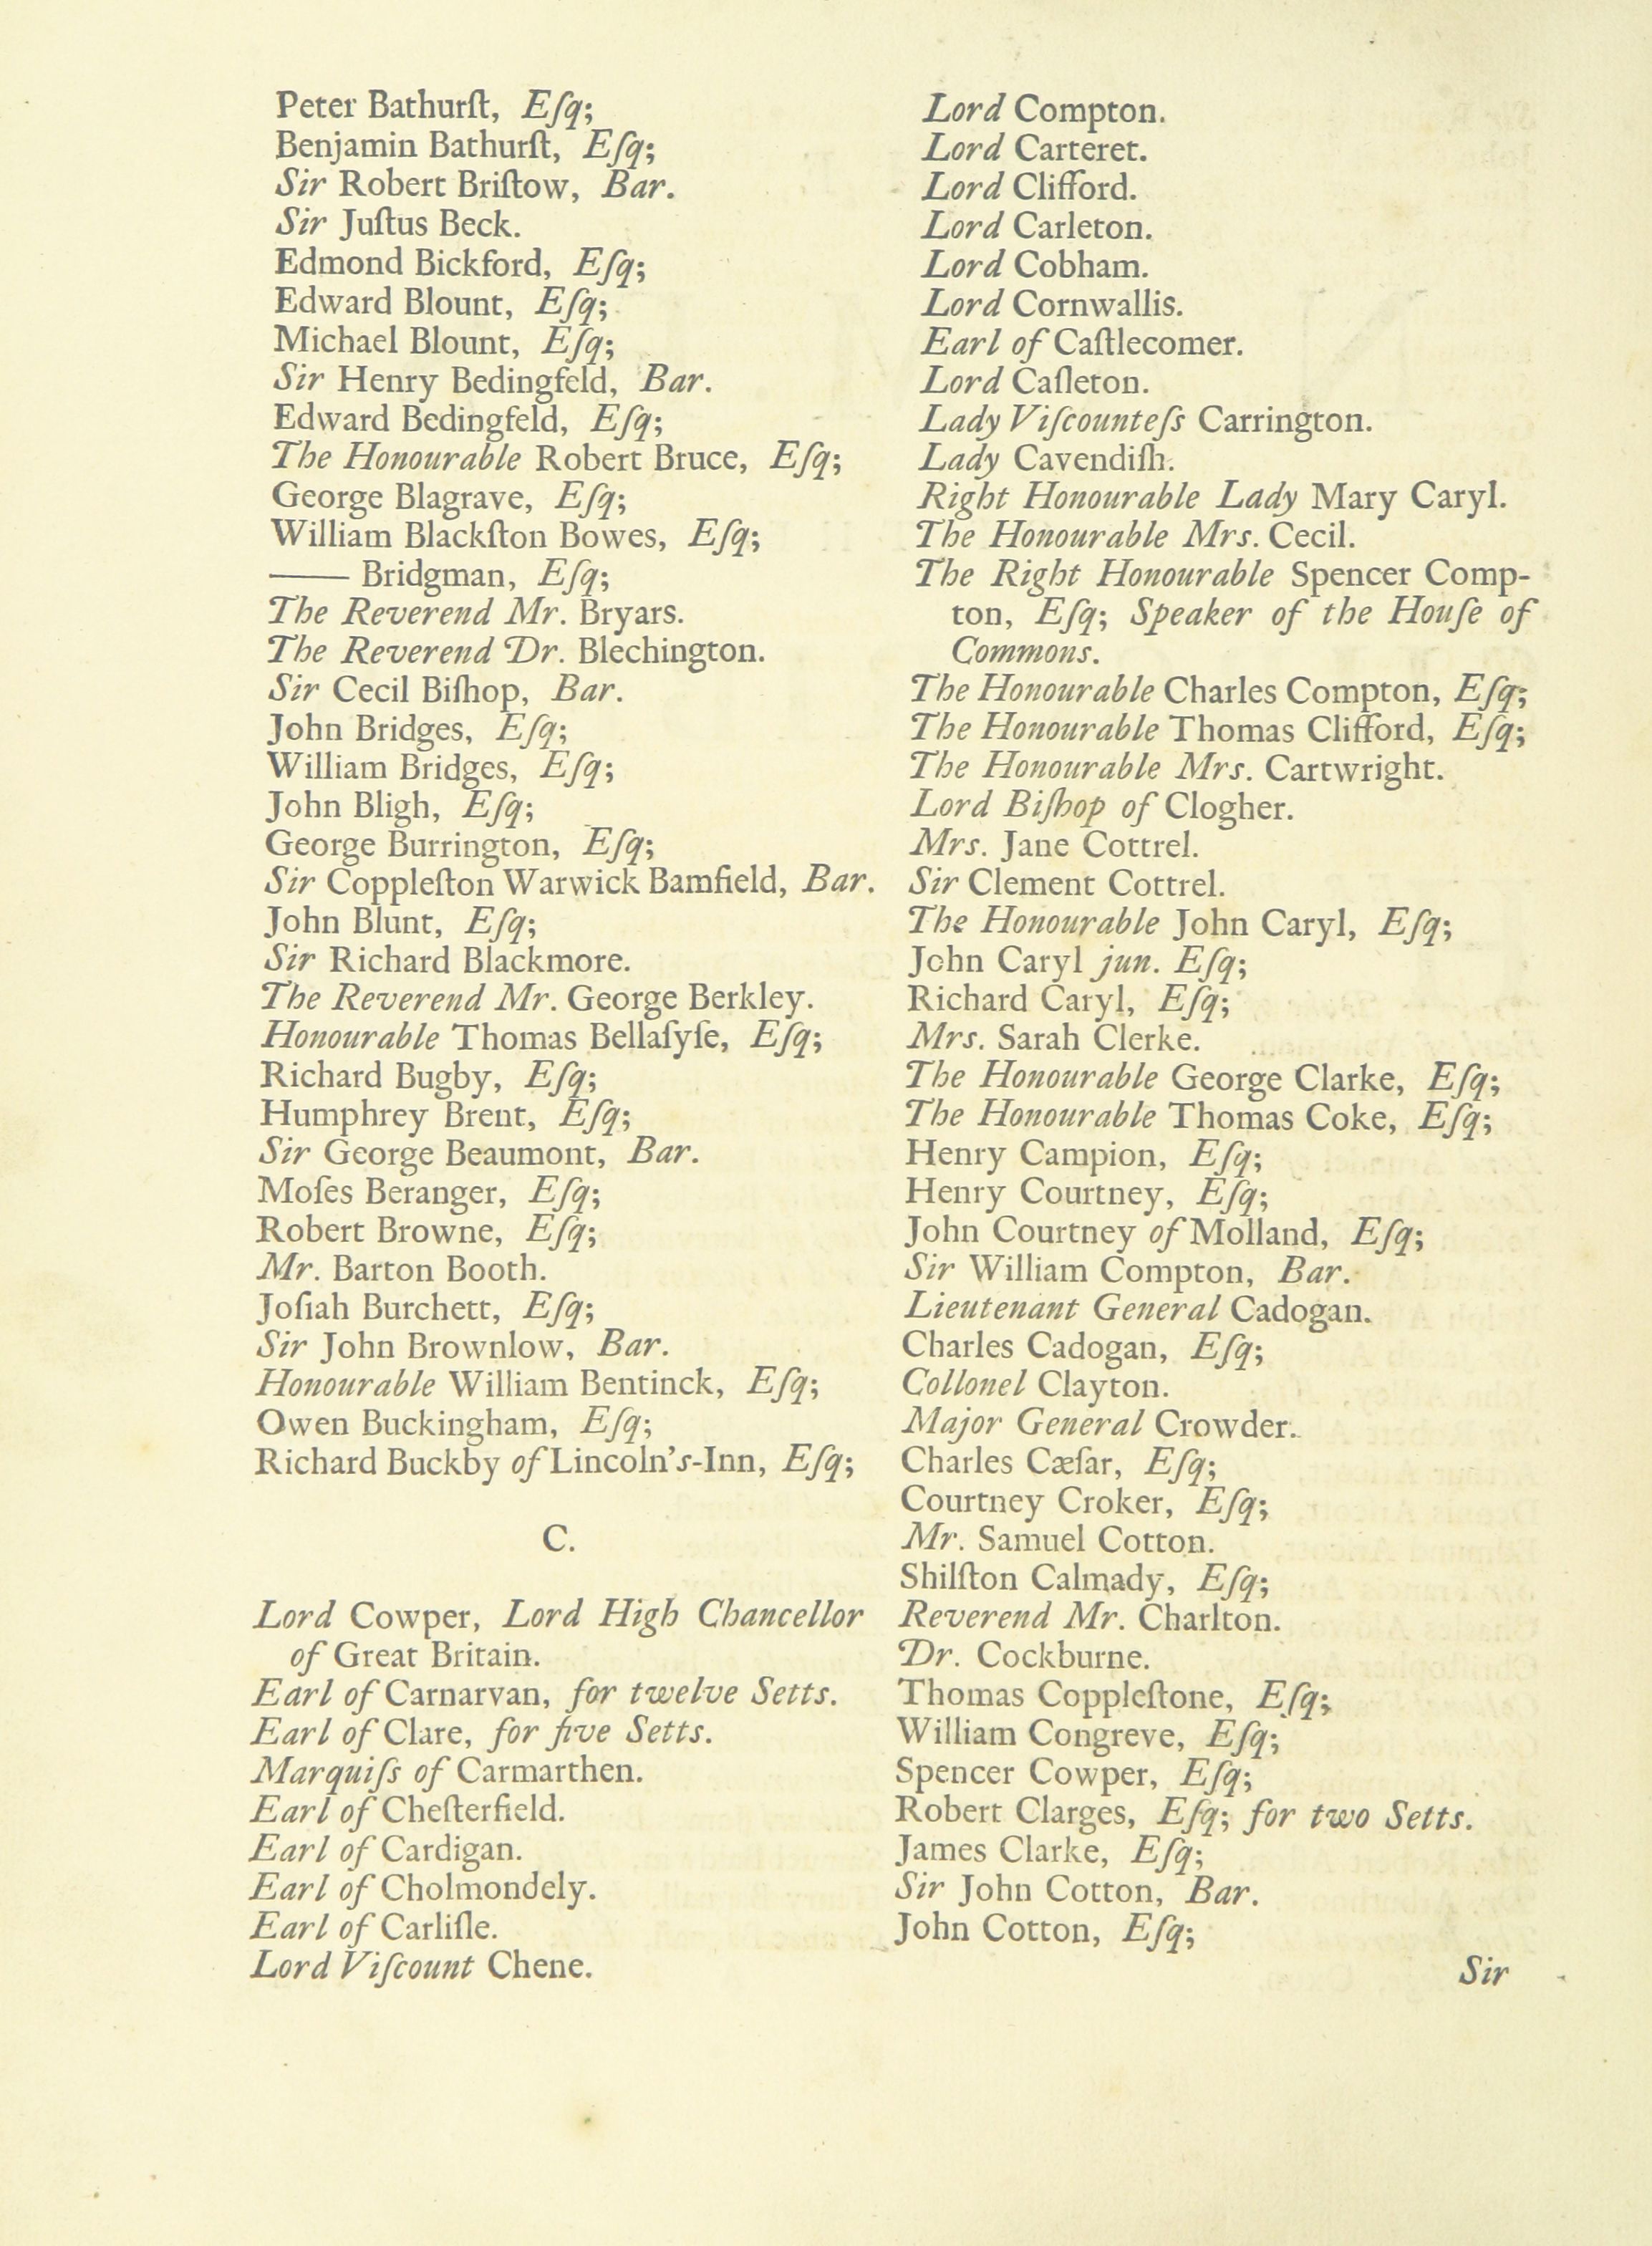 Peter Bathurſt, Eſq;
Benjamin Bathurſt, Eſq;
Sir Robert Briſtow, Bar.
Sir Juſtus Beck.
Edmond Bickford, Eſq;
Edward Blount, Eſq;
Michael Blount, Eſq;
Sir Henry Bedingfeld, Bar.
Edward Bedingfeld, Eſq;
The Honourable Robert Bruce, Eſq;
George Blagrave, Eſq;
William Blackſton Bowes, Eſq;
—— Bridgman, Eſq;
The Reverend Mr. Bryars.
The Reverend Dr. Blechington.
Sir Cecil Biſhop, Bar.
John Bridges, Eſq;
William Bridges, Eſq;
John Bligh, Eſq;
George Burrington, Eſq;
Sir Coppleſton Warwick Bamfield, Bar.
John Blunt, Eſq;
Sir Richard Blackmore.
The Reverend Mr. George Berkley.
Honourable Thomas Bellaſyſe, Eſq;
Richard Bugby, Eſq;
Humphrey Brent, Eſq;
Sir George Beaumont, Bar.
Moſes Beranger, Eſq;
Robert Browne, Eſq;
Mr. Barton Booth.
Joſiah Burchett, Eſq;
Sir John Brownlow, Bar.
Honourable William Bentinck, Eſq;
Owen Buckingham, Eſq;
Richard Buckby of Lincoln's-Inn, Eſq;
C.
Lord Cowper, Lord High Chancellor
of Great Britain.
Earl of Carnarvan, for twelve Setts.
Earl of Clare, for five Setts.
Marquiſs of Carmarthen.
Earl of Cheſterfield.
Earl of Cardigan.
Earl of Cholmondely.
Earl of Carliſle.
Lord Viſcount Chene.
Lord Compton.
Lord Carteret.
Lord Clifford.
Lord Carleton.
Lord Cobham.
Lord Cornwallis.
Earl of Caſtlecomer.
Lord Caſleton.
Lady Viſcounteſs Carrington.
Lady Cavendiſh.
Right Honourable Lady Mary Caryl.
The Honourable Mrs. Cecil.
The Right Honourable Spencer Comp-
ton, Eſq; Speaker of the Houſe of
Commons.
The Honourable Charles Compton, Eſq;
The Honourable Thomas Clifford, Eſq;
The Honourable Mrs. Cartwright.
Lord Biſhop of Clogher.
Mrs. Jane Cottrel.
Sir Clement Cottrel.
The Honourable John Caryl, Eſq;
John Caryl jun. Eſq;
Richard Caryl, Eſq;
Mrs. Sarah Clerke.
The Honourable George Clarke, Eſq;
The Honourable Thomas Coke, Eſq;
Henry Campion, Eſq;
Henry Courtney, Eſq;
John Courtney of Molland, Eſq;
Sir William Compton, Bar.
Lieutenant General Cadogan.
Charles Cadogan, Eſq;
Collonel Clayton.
Major General Crowder.
Charles Cæſar, Eſq;
Courtney Croker, Eſq;
Mr. Samuel Cotton.
Shilſton Calmady, Eſq;
Reverend Mr. Charlton.
Dr. Cockburne.
Thomas Coppleſtone, Eſq;
William Congreve, Eſq;
Spencer Cowper, Eſq;
Robert Clarges, Eſq; for two Setts.
James Clarke, Eſq;
Sir John Cotton, Bar.
John Cotton, Eſq;
Sir